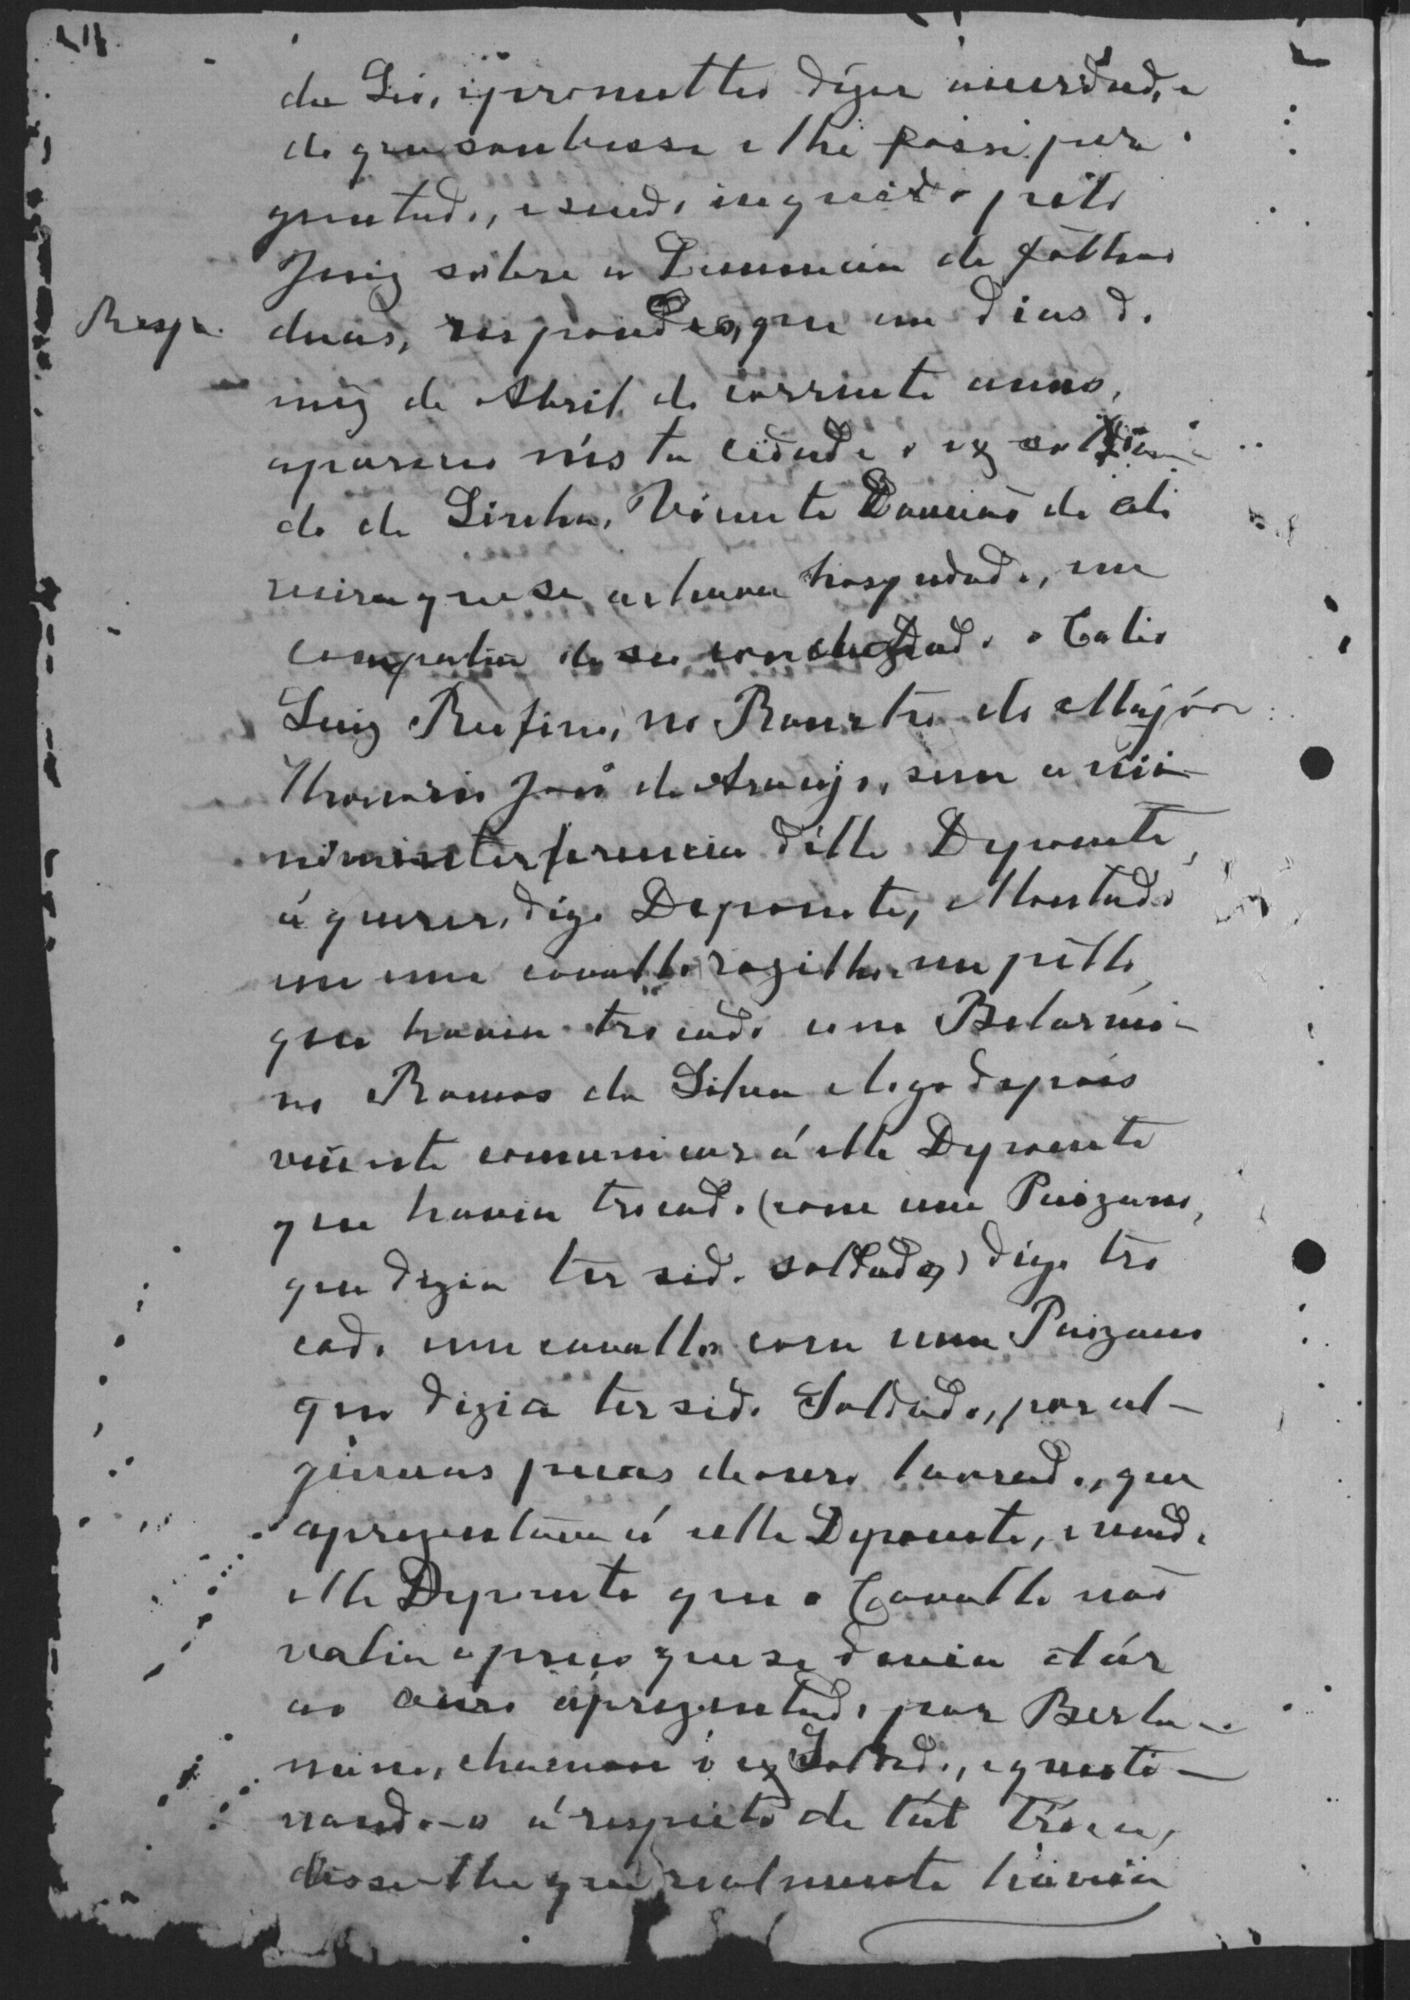 da Lei, e prometteo dizer a verdade
do que soubesse e lhe fosse per
guntado, e sendo inquirido pelo
Juiz sobre a Denuncia de folhas
Resp.
duas, respondeo, que em dias do
mez de Abril do corrente anno,
apareceo nésta cidade o ex sol
do de Linha, Vicente Damião de Oli
veira que se achava hospedado, em
companhia de seo cunhado o Cabo
Luiz Rufino, no Rancho do Major
Honorio José de Araujo, sem a mi-
nima interferencia délle Deponente
á querer, digo Deponente, Montado
em um cavallo rozilho em pêllo
que havia trocado com Belarmi-
no Ramos da Silva e logo depois
veio este comunicar á elle Deponente
que havia trocado (com um Paizano,
que dizia ter sido soldado) digo tro
cado um cavallo com um Paizano
que dizia ter sido Soldado, por al-
gumas peças de ouro lavrado, que
aprezentava á elle Deponente, e vendo
elle Deponente que o Cavallo não
valia o preço que se devia dár
ao ouro aprezentado por Berla-
mino, chamou o ex Soldado, e questio-
nando-o á respeito de tál tróca,
disse-lhe que realmente havia